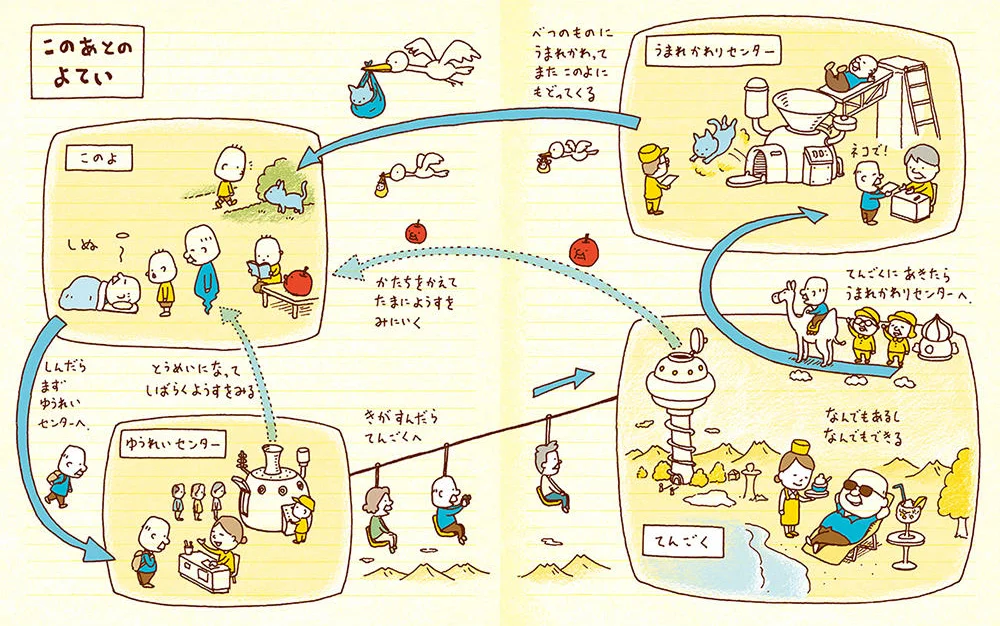 このあとの
よてい
このよ
しぬ
しんだら
まず
ゆうれい
センターへ.
ゆうれいセンター
とうめいになって
しばらくようすをみる
きがすんだら
てんごくへ
てんごく
なんでもあるし
なんでもできる
かたちをかえて
たまにようすを
みにいく
てんごくにあきたら
うまれかわりセンターへ.
うまれかわりセンター
ネコで!
べつのものに
うまれかわって
またこのよに
もどってくる